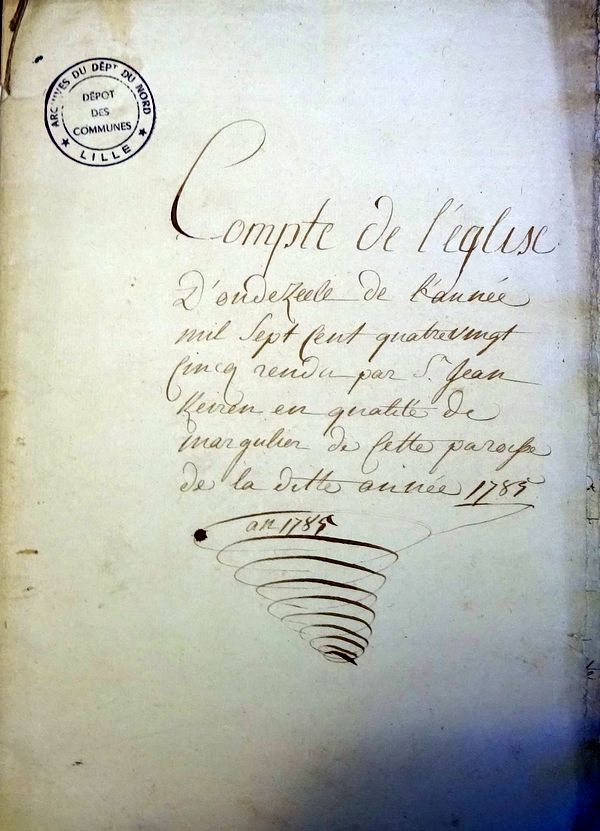 ARCHIVES DU DÉPT DU NORD
DÉPOT
DES
COMMUNES
★ LILLE ★
Compte de l'église
D'oudezeele de l'année
mil Sept Cent quatrevingt
Cinq rendu par Sr. Jean
Keiren en qualité de
margulier de Cette paroisse
de la ditte année 1785
an 1785